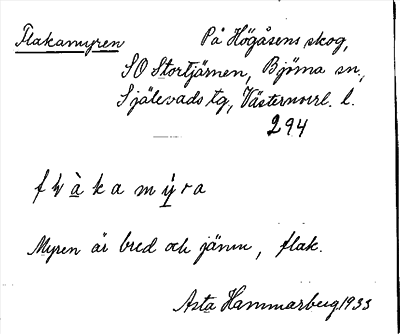 Flakamyren
På Högåsens skog,
SO Stortjärnen, Björna sn.,
Själevads tg, Västernorrl. l.
294
f ł à k a m ý r a
Myren är bred och jämn, flak.
Asta Hammarberg 1933